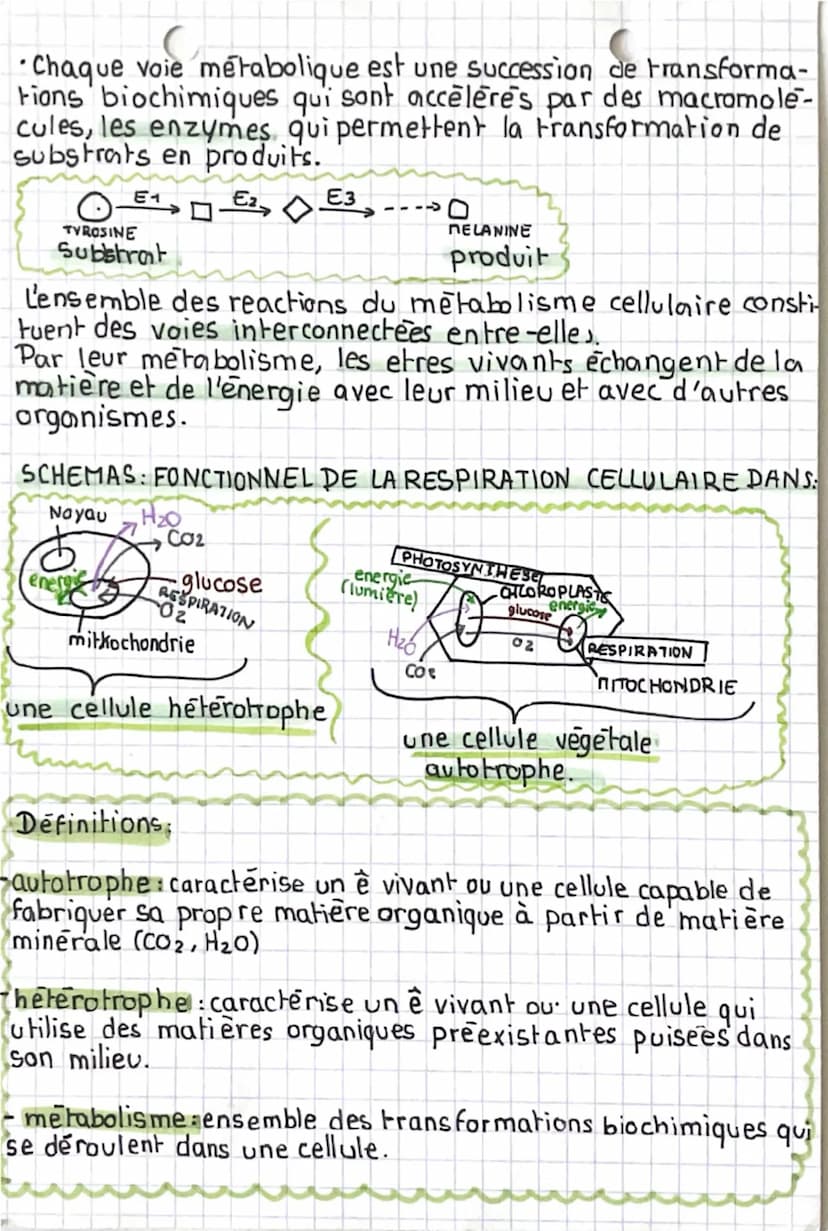 · Chaque voie métabolique est une succession de transforma-
tions biochimiques qui sont accélérés par des macromolé-
cules, les enzymes qui permettent la transformation de
substrats en produits.
E1 E2 E3
TYROSINE MELANINE
Substrat produit
L'ensemble des reactions du métabolisme cellulaire consti-
tuent des voies interconnectées entre-elles.
Par leur métabolisme, les etres vivants échangent de la
matière et de l'énergie avec leur milieu et avec d'autres
organismes.
SCHEMAS: FONCTIONNEL DE LA RESPIRATION CELLULAIRE DANS:
Noyau
H2O
CO2
energie
glucose
RESPIRATION
O2
mitochondrie
une cellule hétérotrophe
PHOTOSYNTHESE
energie
(lumière)
CHLOROPLASTE
glucose
energie
H2O
O2
CO2
RESPIRATION
MITOCHONDRIE
une cellule végétale
autotrophe.
Définitions:
-autotrophe: caractérise un ê vivant ou une cellule capable de
fabriquer sa propre matière organique à partir de matière
minérale (CO2, H2O)
-hétérotrophe: caractérise un ê vivant ou une cellule qui
utilise des matières organiques préexistantes puisées dans
son milieu.
- métabolisme: ensemble des transformations biochimiques qui
se déroulent dans une cellule.